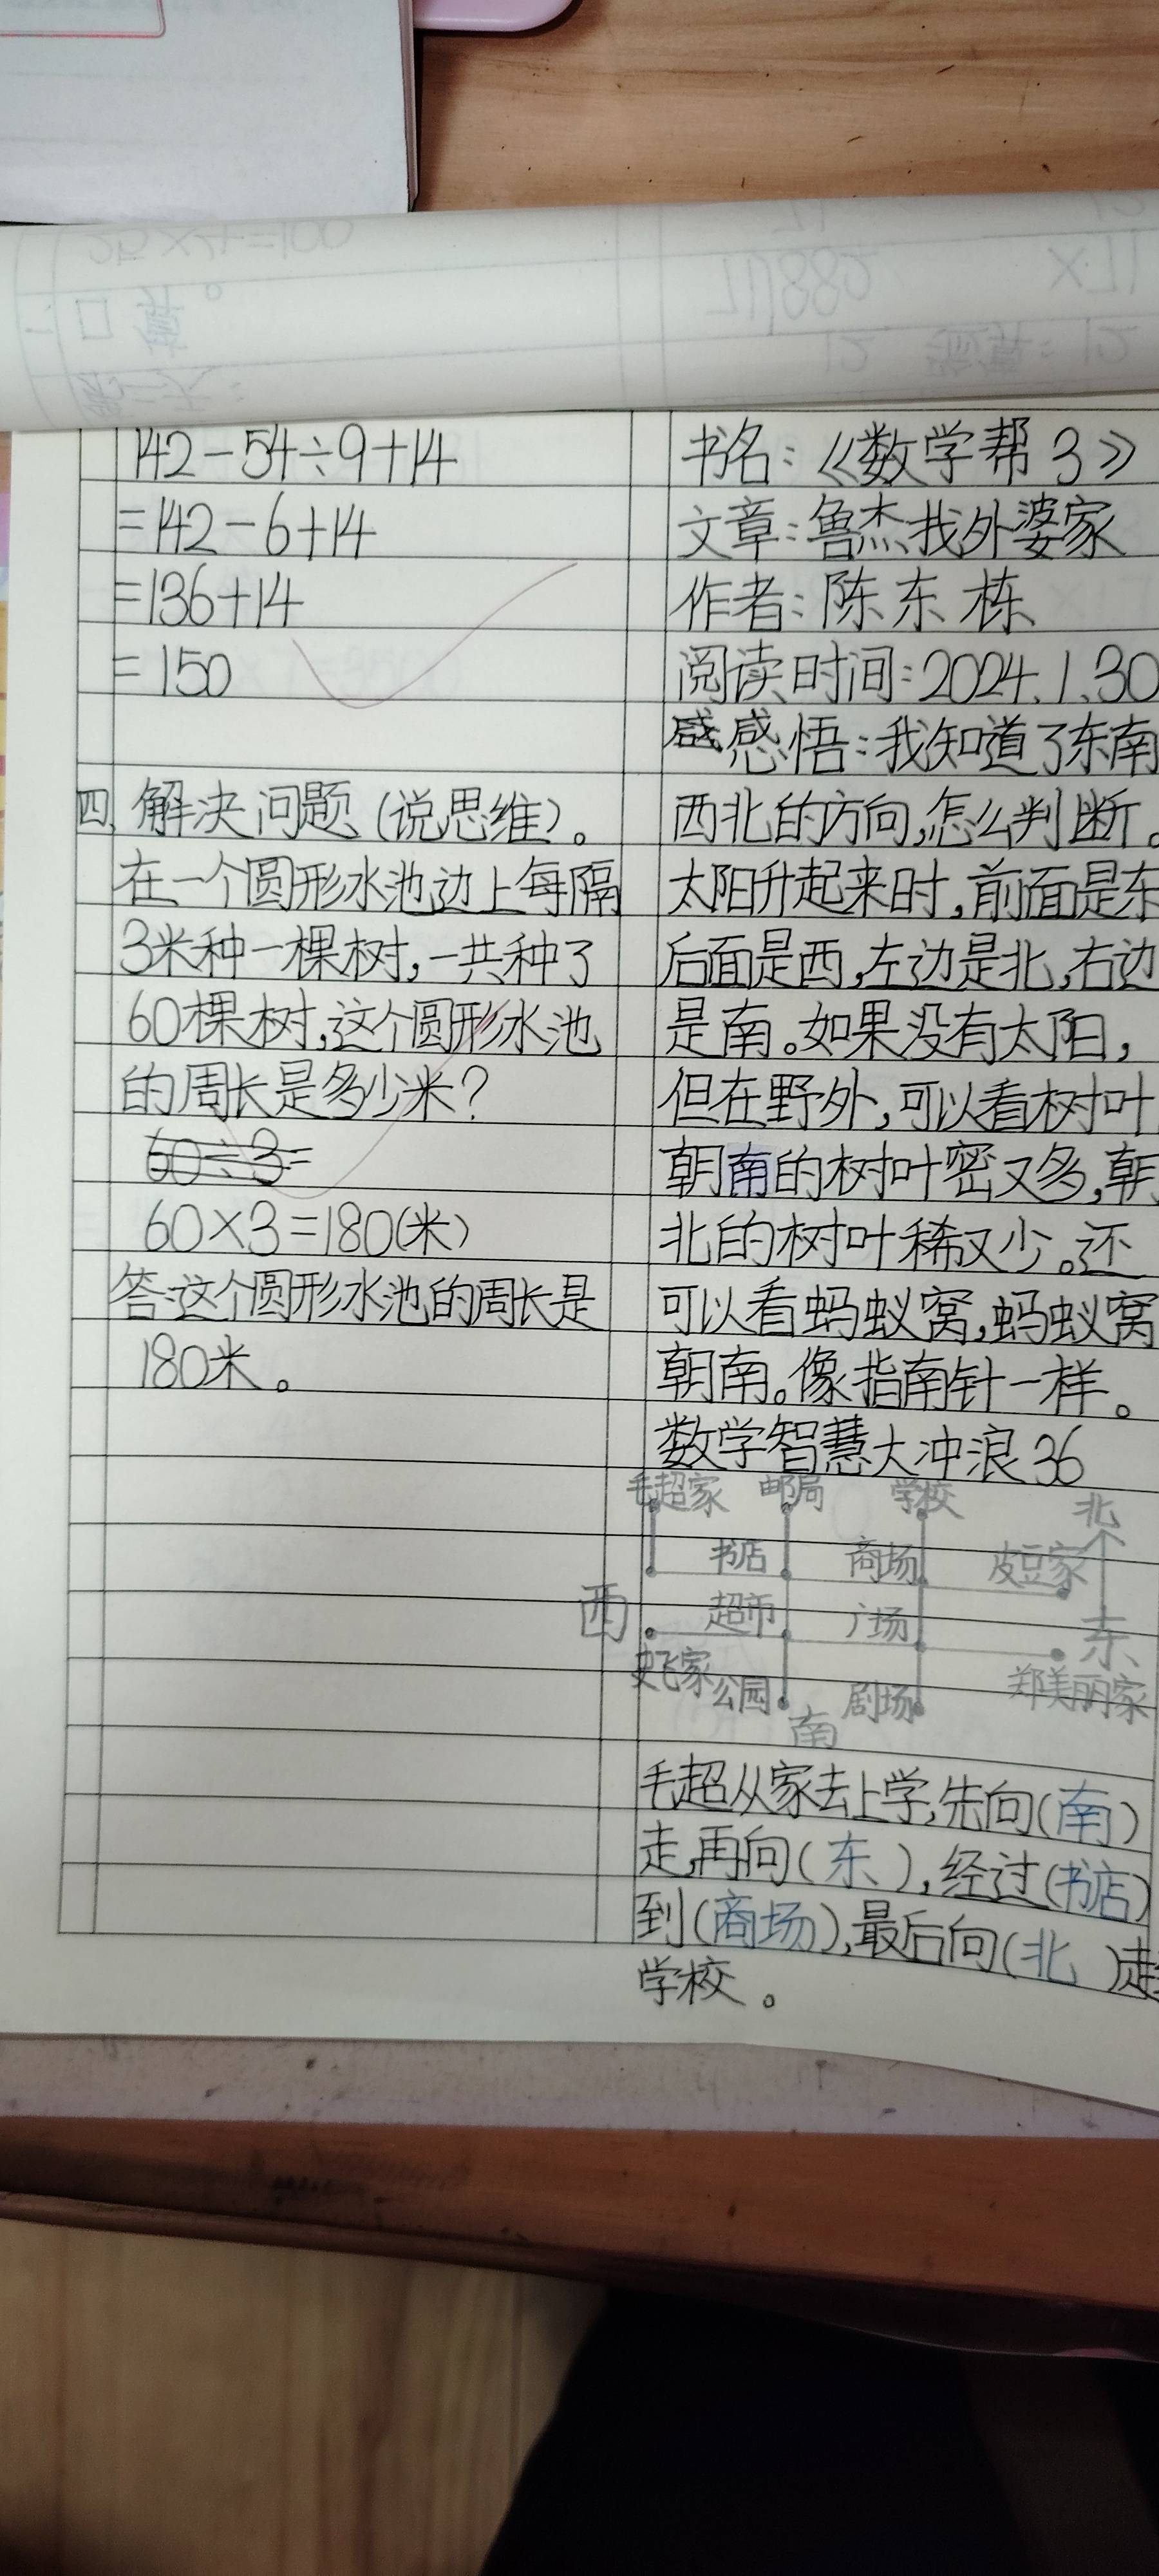 142-54÷9+14
=142-6+14
=136+14
=150
四、解决问题(说思维)。
在一个圆形水池边上每隔
3米种一棵树,一共种了
60棵树,这个圆形水池
的周长是多少米?
60÷3=
60×3=180(米)
答:这个圆形水池的周长是
180米。
书名:《数学帮3》
文章:鲁杰找外婆家
作者:陈东栋
阅读时间:2024.1.30
感感悟:我知道了东南
西北的方向,怎么判断。
太阳升起来时,前面是东
后面是西,左边是北,右边
是南。如果没有太阳,
但在野外,可以看树叶
朝南的树叶密又多,朝
北的树叶稀又少。还
可以看蚂蚁窝,蚂蚁窝
朝南。像指南针一样。
数学智慧大冲浪36
毛超家 邮局 学校 北
书店 商场 皮豆家
西 超市 广场 东
史飞家 公园 剧场 郑美丽家
南
毛超从家去上学,先向(南)
走,再向(东),经过(书店)
到(商场),最后向(北)走
学校。